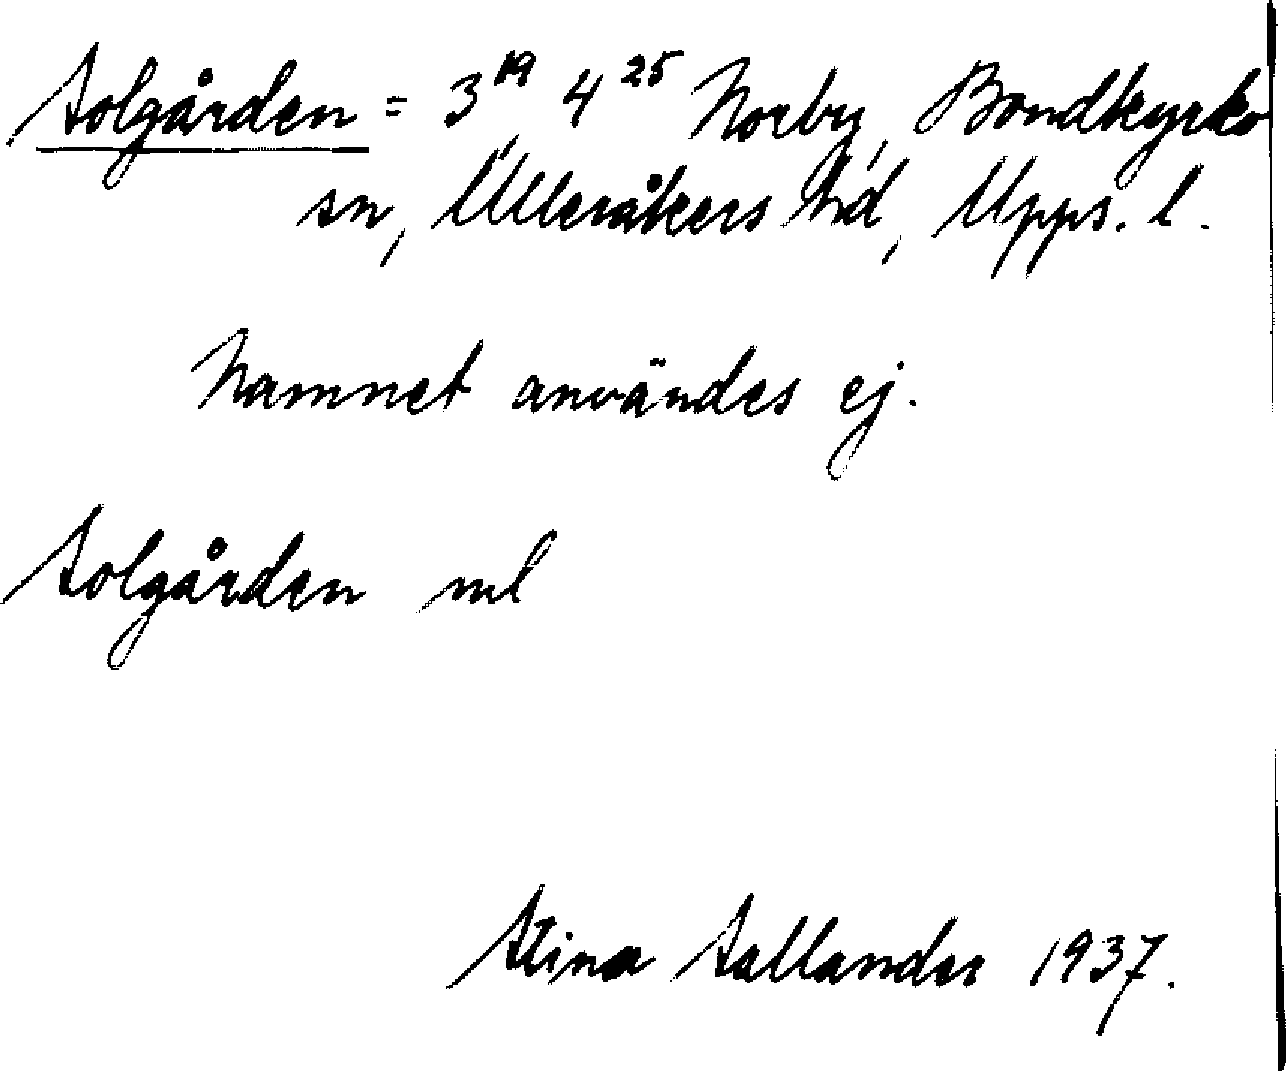 Solgården = 3¹⁹ 4²⁵ Norby, Bondkyrko
sn, Ulleråkers hd, Upps. l.
Namnet användes ej.
Solgården ml
Stina Sallander 1937.